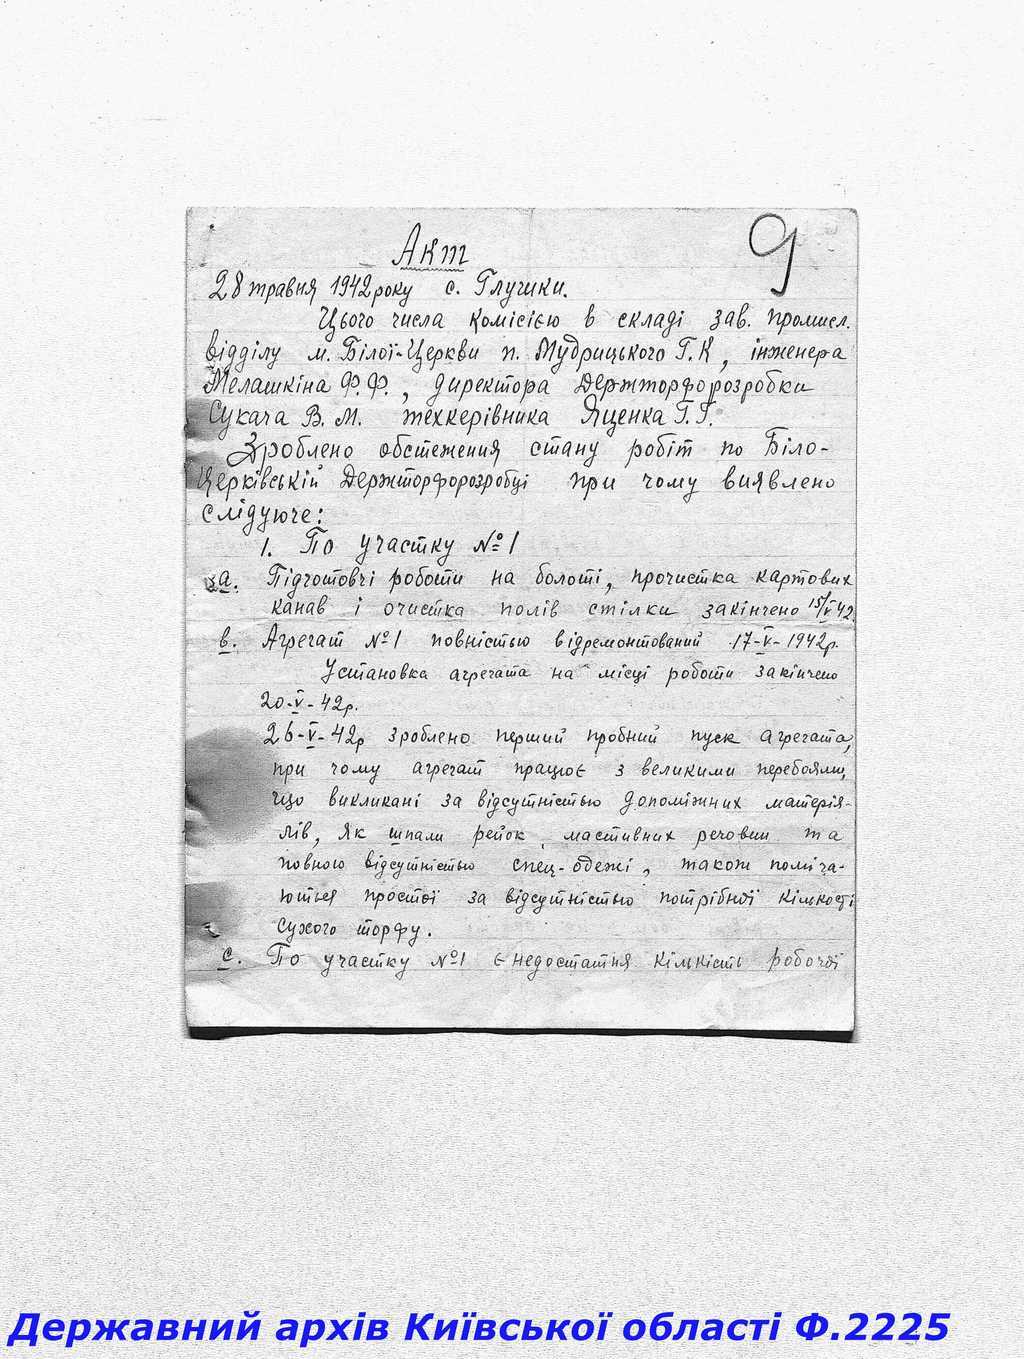 9
Акт
28 травня 1942 року с. Глушки.
Цього числа комісією в складі зав. промисл.
відділу м. Білої-Церкви п. Мудрицького Г.К, інженера
Мелашкіна Ф.Ф., директора Держторфорозробки
Сукача В.М. техкерівника Яценка Г.Г.
Зроблено обстеження стану робіт по Біло-
Церківській Держторфорозробці при чому виявлено
слідуюче:
1. По участку №1
а. Підготовчі роботи на болоті, прочистка картових
канав і очистка полів стілки закінчено 15/V 42.
в. Агрегат №1 повністью відремонтований 17-V-1942р.
Установка агрегата на місці роботи закінчено
20-V-42р.
26-V-42р зроблено перший пробний пуск агрегата,
при чому агрегат працює з великими перебоями,
що викликані за відсутністью допоміжних матерія-
лів, як шпали рейок, мастивних речовин та
повною відсутністью спец-одежі, також поміча-
ються простої за відсутністью потрібної кількості
сухого торфу.
с. По участку №1 є недостатня кількість робочої
Державний архів Київської області Ф.2225